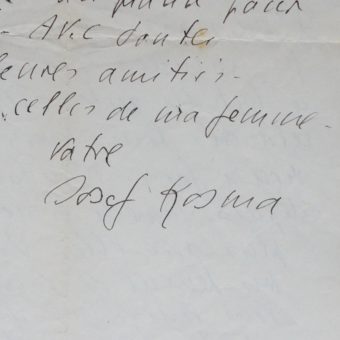 - Avec toutes
leures amitiés -
celles de ma femme -
votre
Josef Kosma